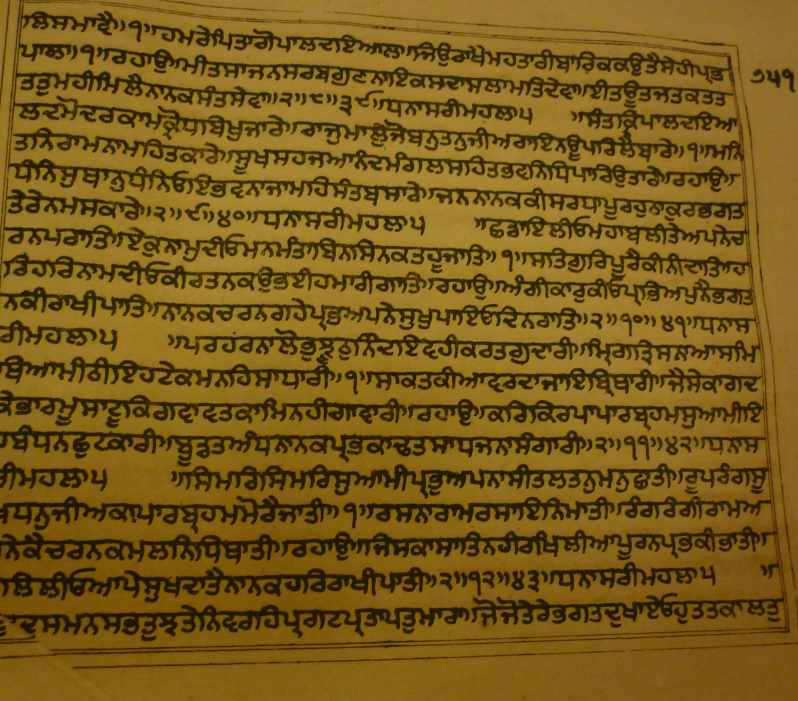 ਲਿਸਮਾਵੈ॥੧॥ਹਮਰੇਪਿਤਾਗੋਪਾਲਦਇਆਲਾ॥ਜਿਉਰਾਖੈਮਹਤਾਰੀਬਾਰਿਕਕਉਤੈਸੇਹੀਪ੍ਰਭ
੭੫੧
ਪਾਲਾ॥੧॥ਰਹਾਉ॥ਮੀਤਸਾਜਨਸਰਬਗੁਣਨਾਇਕਸਦਾਸਲਾਮਤਿਦੇਵਾ॥ਈਤਊਤਜਤਕਤਤ
ਤਤੁਮਹੀਮਿਲੈਨਾਨਕਸੰਤਸੇਵਾ॥੨॥੮॥੩੯॥ਧਨਾਸਰੀਮਹਲਾ੫ ॥ਸੰਤਕ੍ਰਿਪਾਲਦਇਆ
ਲਦਮੋਦਰਕਾਮਕ੍ਰੋਧਬਿਖੁਜਾਰੇ॥ਰਾਜੁਮਾਲੁਜੋਬਨੁਤਨੁਜੀਅਰਾਇਨਊਪਰਿਲੈਬਾਰੇ॥੧॥ਮਨਿ
ਤਨਿਰਾਮਨਾਮਹਿਤਕਾਰੇ॥ਸੂਖਸਹਜਆਨੰਦਮੰਗਲਸਹਿਤਭਵਨਿਧਿਪਾਰਿਉਤਾਰੇ॥ਰਹਾਉ॥
ਧੰਨਿਸੁਥਾਨੁਧੰਨਿਓਇਭਵਨਾਜਾਮਹਿਸੰਤਬਸਾਰੇ॥ਜਨਨਾਨਕਕੀਸਰਧਾਪੂਰਹੁਠਾਕੁਰਭਗਤ
ਤੇਰੇਨਮਸਕਾਰੇ॥੨॥੯॥੪੦॥ਧਨਾਸਰੀਮਹਲਾ੫ ॥ਛਡਾਇਲੀਓਮਹਾਬਲੀਤੇਅਪਨੇਚ
ਰਨਪਰਾਤਿ॥ਏਕੁਨਾਮੁਦੀਓਮਨਮੰਤਾਬਿਨਸਿਨਕਤਹੂਜਾਤਿ॥੧॥ਸਤਿਗੁਰਿਪੂਰੈਕੀਨੀਦਾਤਿ॥ਹ
ਰਿਹਰਿਨਾਮਦੀਓਕੀਰਤਨਕਉਭਈਹਮਾਰੀਗਾਤਿ॥ਰਹਾਉ॥ਅੰਗੀਕਾਰੁਕੀਓਪ੍ਰਭਿਅਪੁਨੈਭਗਤ
ਨਕੀਰਾਖੀਪਾਤਿ॥ਨਾਨਕਚਰਨਗਹੇਪ੍ਰਭਅਪਨੇਸੁਖੁਪਾਇਓਦਿਨਰਾਤਿ॥੨॥੧੦॥੪੧॥ਧਨਾਸ
ਰੀਮਹਲਾ੫ ॥ਪਰਹਰਨਾਲੋਭੁਝੂਠਨਿੰਦਾਇਵਹੀਕਰਤਗੁਦਾਰੀ॥ਮ੍ਰਿਗਤ੍ਰਿਸਨਾਆਸਮਿ
ਥਿਆਮੀਠੀਇਹਟੇਕਮਨਹਿਸਾਧਾਰੀ॥੧॥ਸਾਕਤਕੀਆਵਰਦਾਜਾਇਬ੍ਰਿਥਾਰੀ॥ਜੈਸੇਕਾਗਦ
ਕੇਭਾਰਮੂਸਾਟੂਕਿਗਵਾਵਤਕਾਮਿਨਹੀਗਾਵਾਰੀ॥ਰਹਾਉ॥ਕਰਿਕਿਰਪਾਪਾਰਬ੍ਰਹਮਸੁਆਮੀਇ
ਹਬੰਧਨਛੁਟਕਾਰੀ॥ਬੂਡਤਅੰਧਨਾਨਕਪ੍ਰਭਕਾਢਤਸਾਧਜਨਾਸੰਗਾਰੀ॥੨॥੧੧॥੪੨॥ਧਨਾਸ
ਰੀਮਹਲਾ੫ ॥ਸਿਮਰਿਸਿਮਰਿਸੁਆਮੀਪ੍ਰਭੁਅਪਨਾਸੀਤਲਤਨੁਮਨੁਛਾਤੀ॥ਰੂਪਰੰਗਸੂ
ਖਧਨੁਜੀਅਕਾਪਾਰਬ੍ਰਹਮਮੋਰੈਜਾਤੀ॥੧॥ਰਸਨਾਰਾਮਰਸਾਇਨਿਮਾਤੀ॥ਰੰਗਰੰਗੀਰਾਮਅ
ਨੇਕੈਚਰਨਕਮਲਨਿਧਿਥਾਤੀ॥ਰਹਾਉ॥ਜਿਸਕਾਸਾਤਿਨਹੀਰਖਿਲੀਆਪੂਰਨਪ੍ਰਭਕੀਭਾਤੀ॥
ਲਿਲੀਓਆਪੇਸੁਖਦਾਤੈਨਾਨਕਹਰਿਰਾਖੀਪਾਤੀ॥੨॥੧੨॥੪੩॥ਧਨਾਸਰੀਮਹਲਾ੫ ॥
ਦੁਸਮਨਸਭਤੁਝਤੇਨਿਵਰਹਿਪ੍ਰਗਟਪ੍ਰਤਾਪਤੁਮਾਰਾ॥ਜੋਜੋਤੇਰੇਭਗਤਦੁਖਾਏਓਹੁਤਤਕਾਲਤੁ